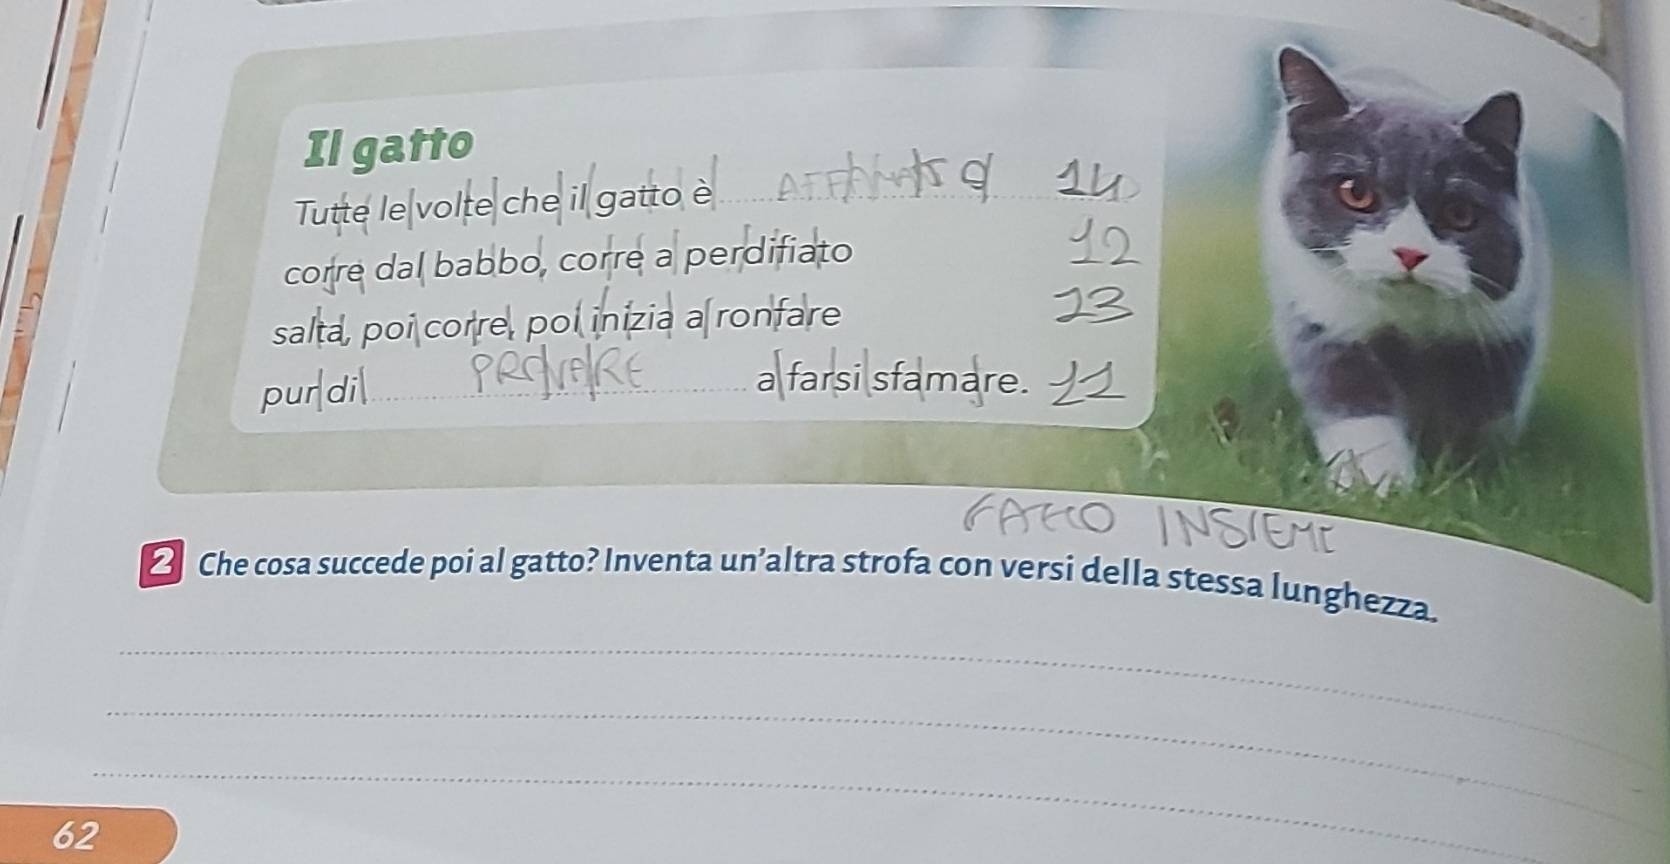 Il gatto
Tutte le volte che il gatto è ........ AFFAMATO 14
corre dal babbo, corre a perdifiato 12
salta, poi corre, poi inizia a ronfare 13
pur di ........ PROVARE ........ a farsi sfamare. 11
FATTO INSIEME
2 Che cosa succede poi al gatto? Inventa un'altra strofa con versi della stessa lunghezza.
62